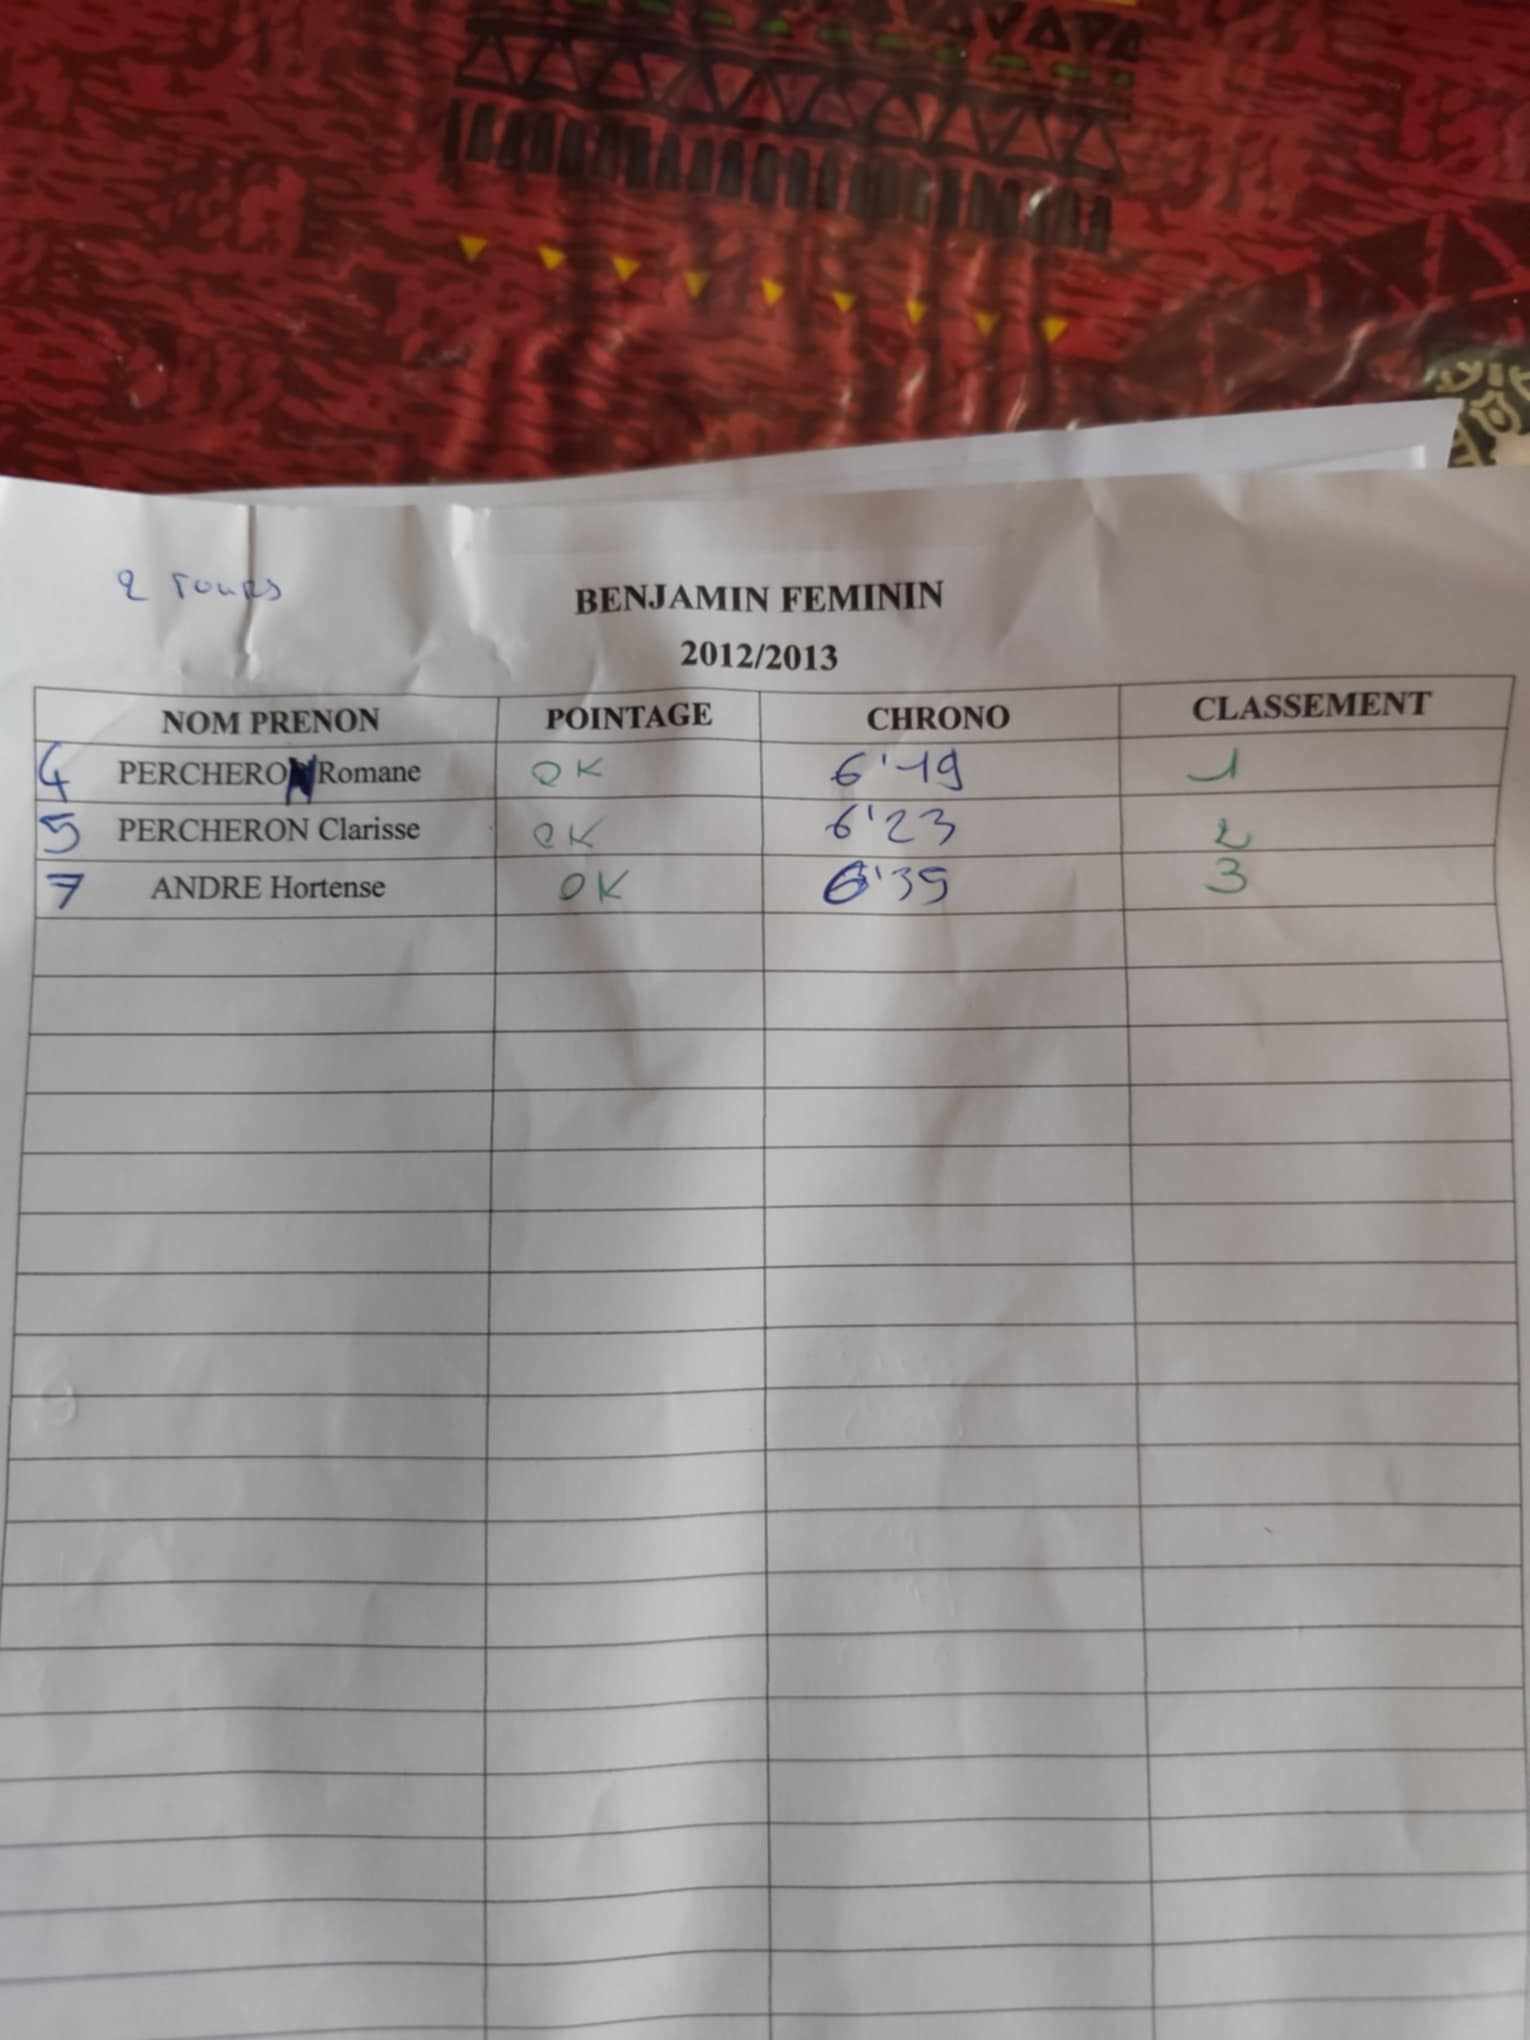 2 Tours
BENJAMIN FEMININ
2012/2013
NOM PRENON POINTAGE CHRONO CLASSEMENT
4 PERCHERON Romane OK 6'19 1
5 PERCHERON Clarisse OK 6'23 2
7 ANDRE Hortense OK 6'39 3